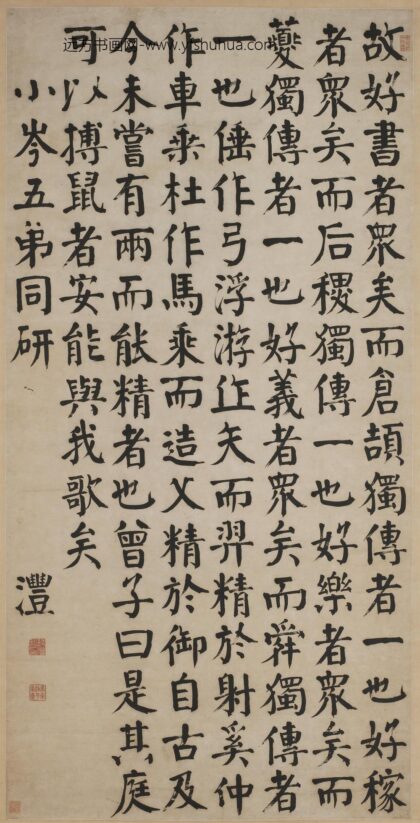 远方书画网-www.yishuhua.com
故好書者衆矣而倉頡獨傳者一也好稼
者衆矣而后稷獨傳一也好樂者衆矣而
夔獨傳者一也好義者衆矣而舜獨傳者
一也倕作弓浮游作矢而羿精於射奚仲
作車乘杜作馬乘而造父精於御自古及
今未嘗有兩而能精者也曾子曰是其庭
可以搏鼠者安能與我歌矣
小岑五弟同研
灃